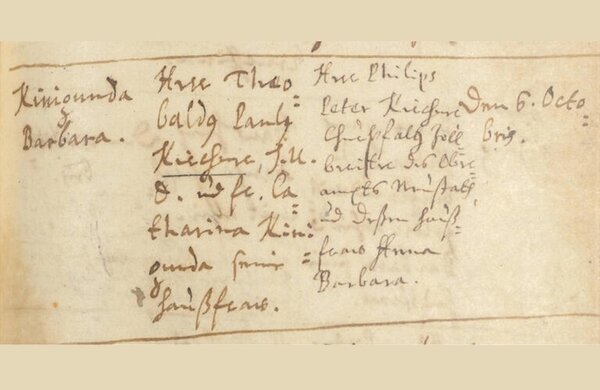 Kinigunda
Barbara.
Herr Theo=
baldus Pauli
Kircher, J.U.
D. und fr. Ca=
tharina Kini=
gunda seine
Haußfraw.
Herr Philips
Peter Kircher
Churpfaltz Zoll=
breiter des Obr=
ampts Neustatt,
und deßen Hauß=
fraw Anna
Barbara.
Den 6. Octo=
bris.